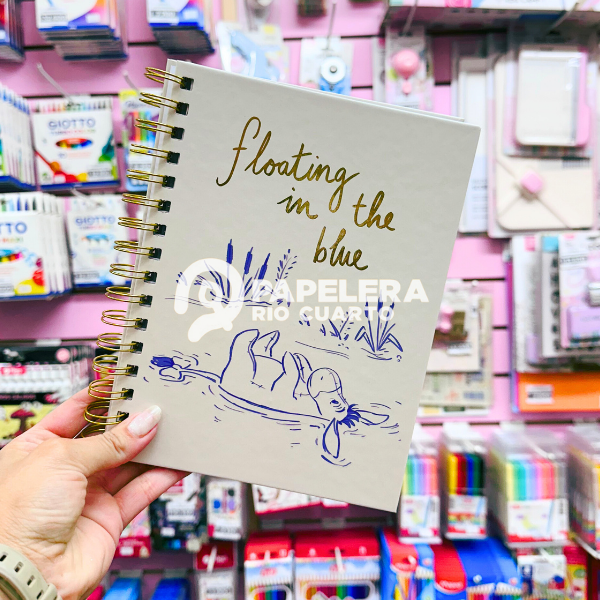 floating
in the
blue
PAPELERA
RIO CUARTO
GIOTTO
GIOTTO